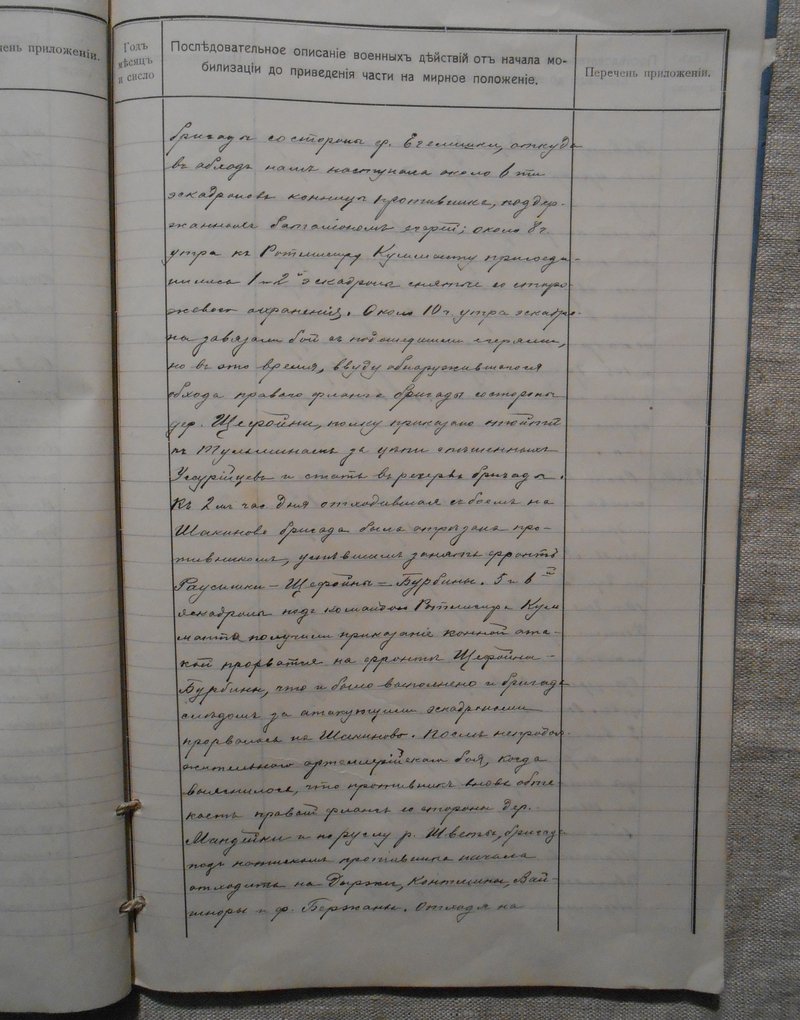 чень приложеніи.
Годъ
мѣсяцъ
и сисло
Послѣдовательное описаніе военныхъ дѣйствій отъ начала мо-
билизаціи до приведенія части на мирное положеніе.
Перечень приложеніи.
бригады со стороны ф. Егелишки, откуда
въ обходъ намъ наступала около 6 ти
эскадроновъ конницы противника, поддер-
жанныхъ баталіономъ егерей; около 8 ч
утра къ Ротмистру Кульманту присоеди-
нились 1 и 2й эскадроны снятые со сторо-
жевого охраненія. Около 10 ч. утра эскадро-
на завязали бой съ подошедшими егерями,
но въ это время, ввуду обнаружившагося
обхода праваго фланга бригады со стороны
дер. Щефойни, полку приказано отойти
къ за цѣпи спѣшенныхъ
Усурійцевъ и стать въ резервъ бригады.
Къ 2 мъ час дня отходившая съ боемъ на
Шакиново бригада была отрѣзана про-
тивникомъ, успѣвшимъ занять фронтъ
Раусишки – Щефойны – Бурбины. 5 и 6й
эскадроны подъ командою Ротмистра Куль
манта получили приказаніе конной ата-
кой прорваться на фронтъ Щефойни –
Бурбины, что и было выполнено и бригада
слѣдомъ за атакующими эскадронами
прорвалась на Шакиново. Послѣ непродол-
жительнаго артиллерійскаго боя, когда
выяснилось, что противникъ вновь обте-
каетъ правый флангъ со стороны дер.
Мандейки и по руслу р. Шветы, бригада
подъ натискомъ противника начала
отходить на Дыржи, Контицины, Вай-
шноры и ф. Бержаны. Отходя на